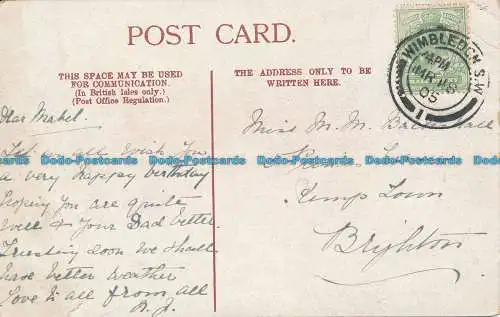 POST CARD.
THIS SPACE MAY BE USED
FOR COMMUNICATION.
(In British Isles only.)
(Post Office Regulation.)
THE ADDRESS ONLY TO BE
WRITTEN HERE.
WIMBLEDON S.W.
4 PM
MR
05
1
Dear Mabel.
all wish you
a very happy birthday
hoping you are quite
well & your Dad better
Trusting soon we shall
have better weather
Love to all from all
Miss M. M.
Kemp Town
Brighton
Dodo-Postcards Dodo-Postcards Dodo-Postcards Dodo-Postcards Dodo-Postcards
Dodo-Postcards Dodo-Postcards Dodo-Postcards Dodo-Postcards Dodo-Postcards